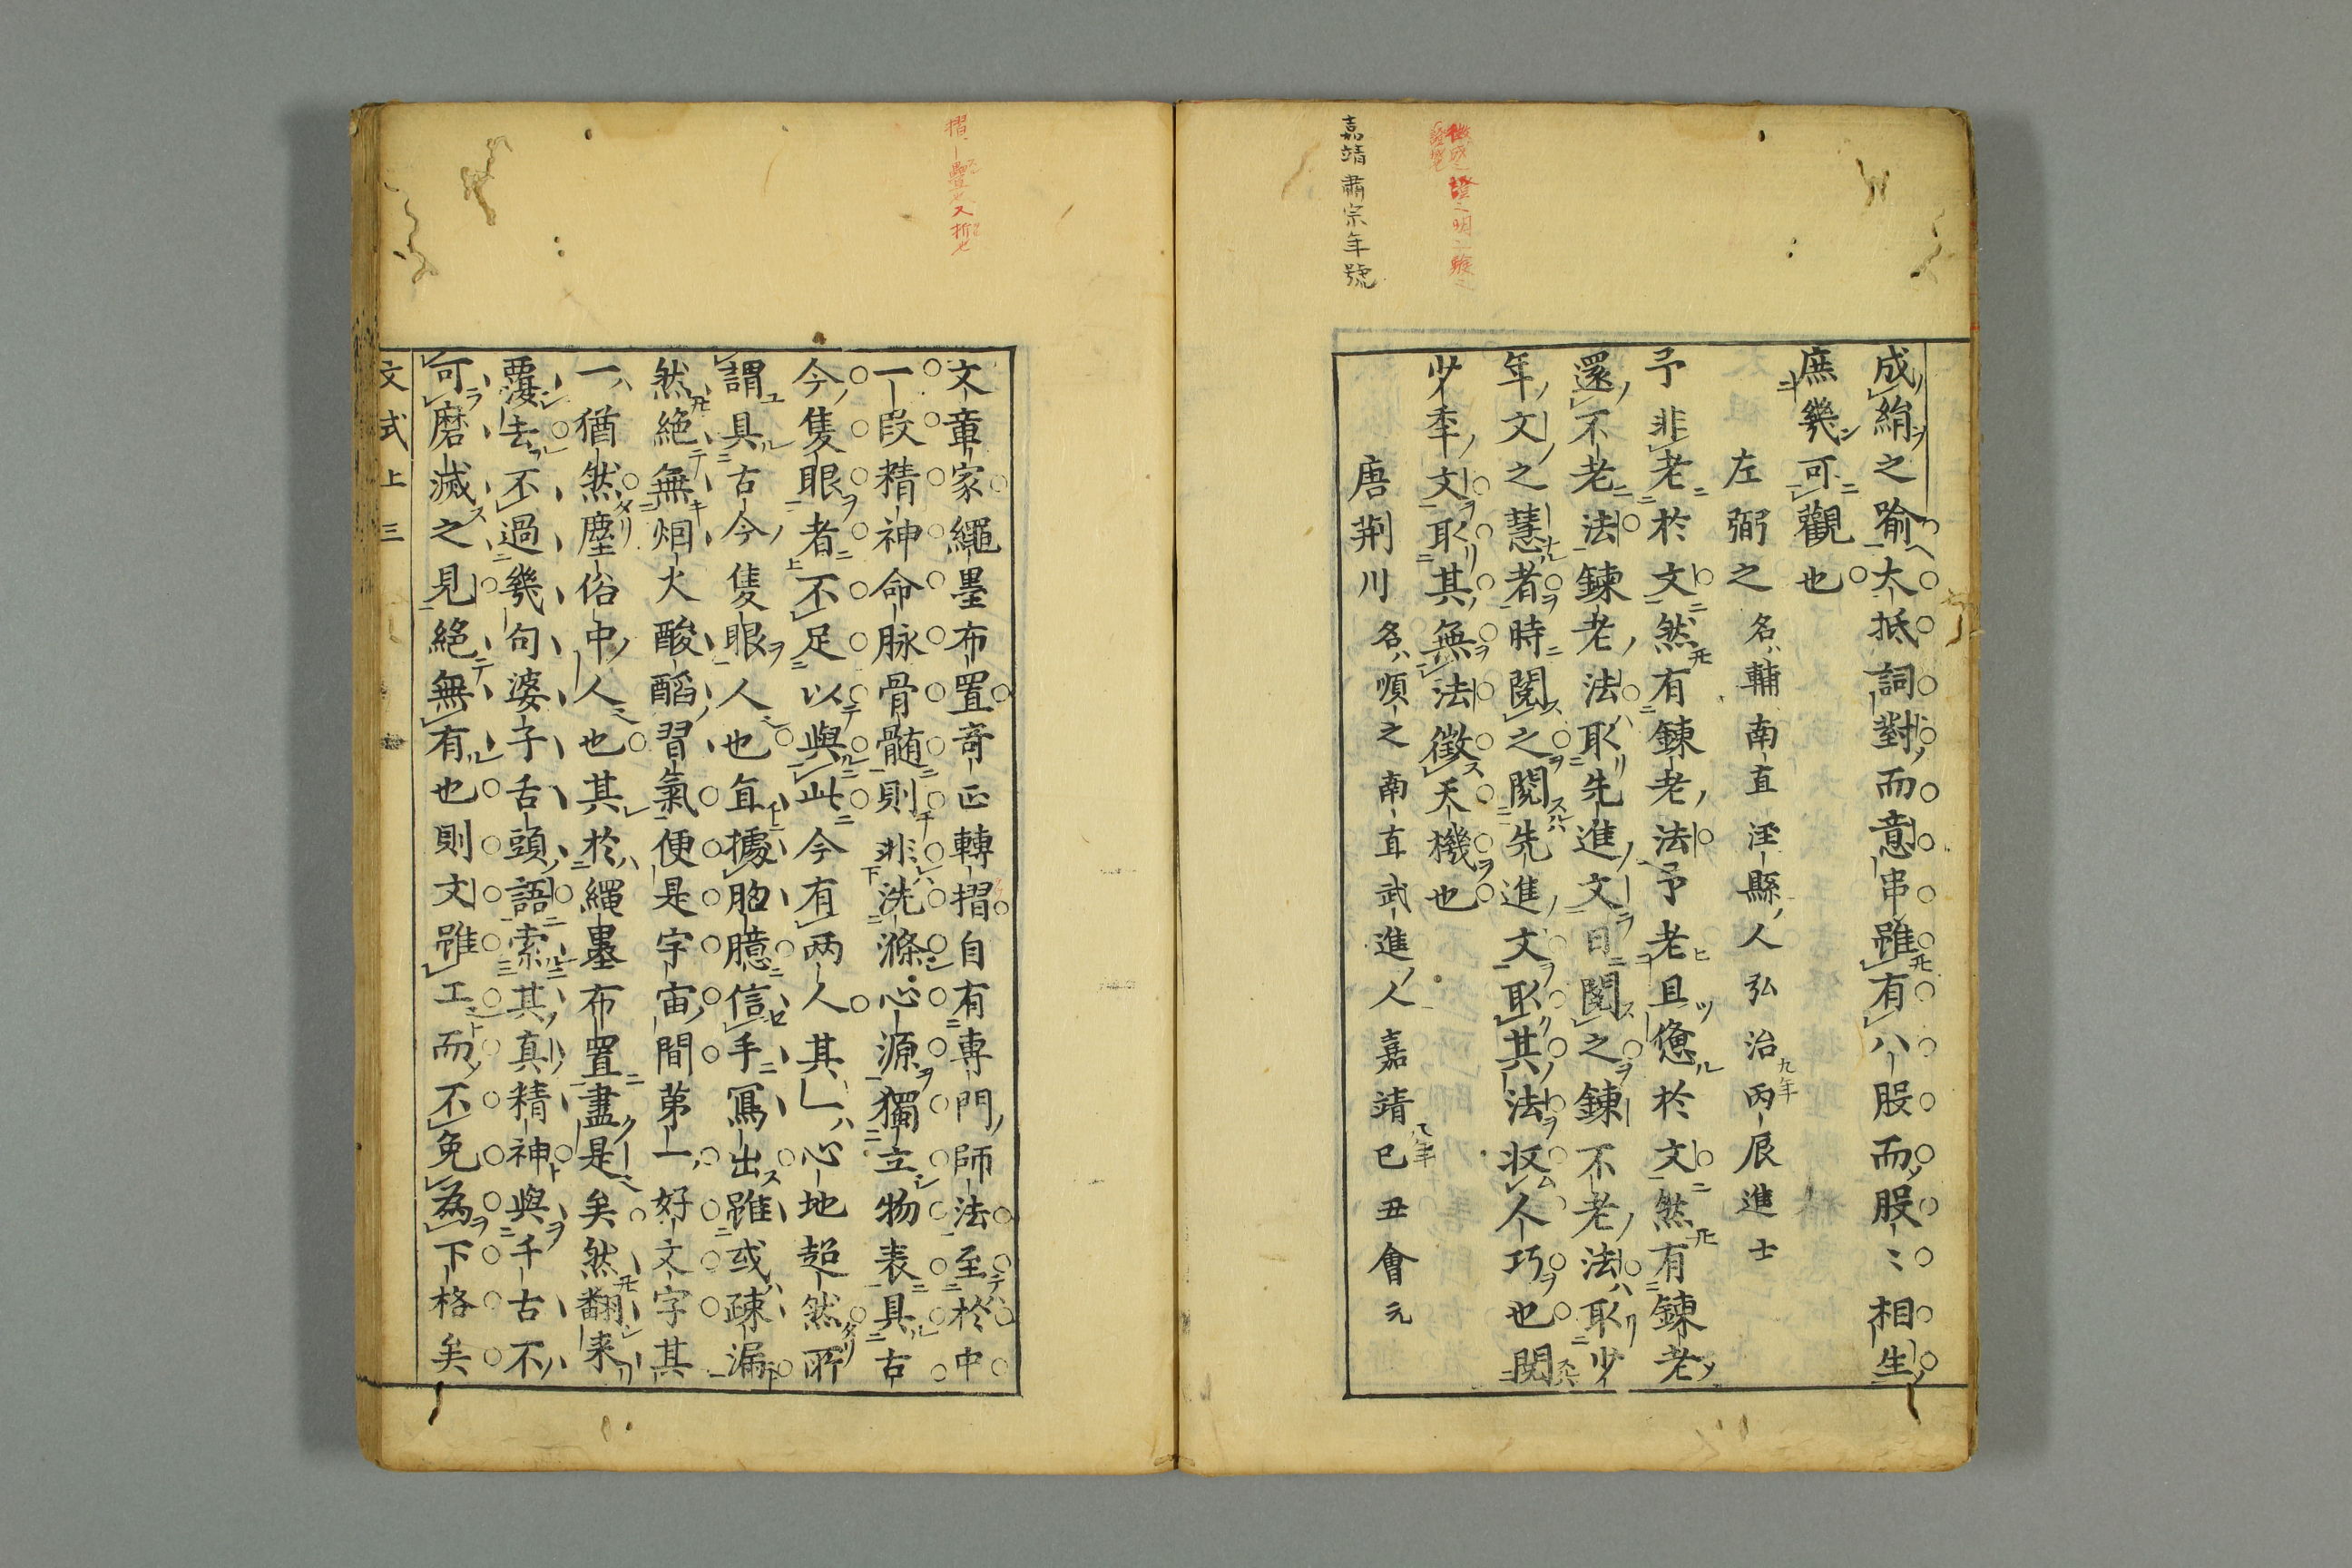 嘉靖肅宗年號
成絹之喻大抵詞對而意串雖有八股而股〻相生
庶幾可觀也
左弼之名輔南直涇縣人弘治丙辰進士
九年
予非老於文然有鍊老法予老且憊於文然有鍊老
還不老法鍊老法耴先進文日閱之鍊不老法耴少
年文之慧者時閱之閱先進文耴其法収人巧也閱
少季文耴其無法徵天機也
唐荆川名順之南直武進人嘉靖己丑會元
八年
摺疊也又折也
文章家繩墨布置奇正轉摺自有專門師法至於中
一段精神命脉骨髄則非洗滌心源獨立物表具古
今隻眼者不足以與此今有两人其一心地超然所
謂具古今隻眼人也直據胸臆信手寫出雖或疎漏
然絶無烟火酸餡習氣便是宇宙間第一好文字其
一猶然塵俗中人也其於繩墨布置盡是矣然翻来
覆去不過幾句婆子舌頭語索其真精神與千古不
可磨滅之見絶無有也則文雖工而不免為下格矣
文式上 三